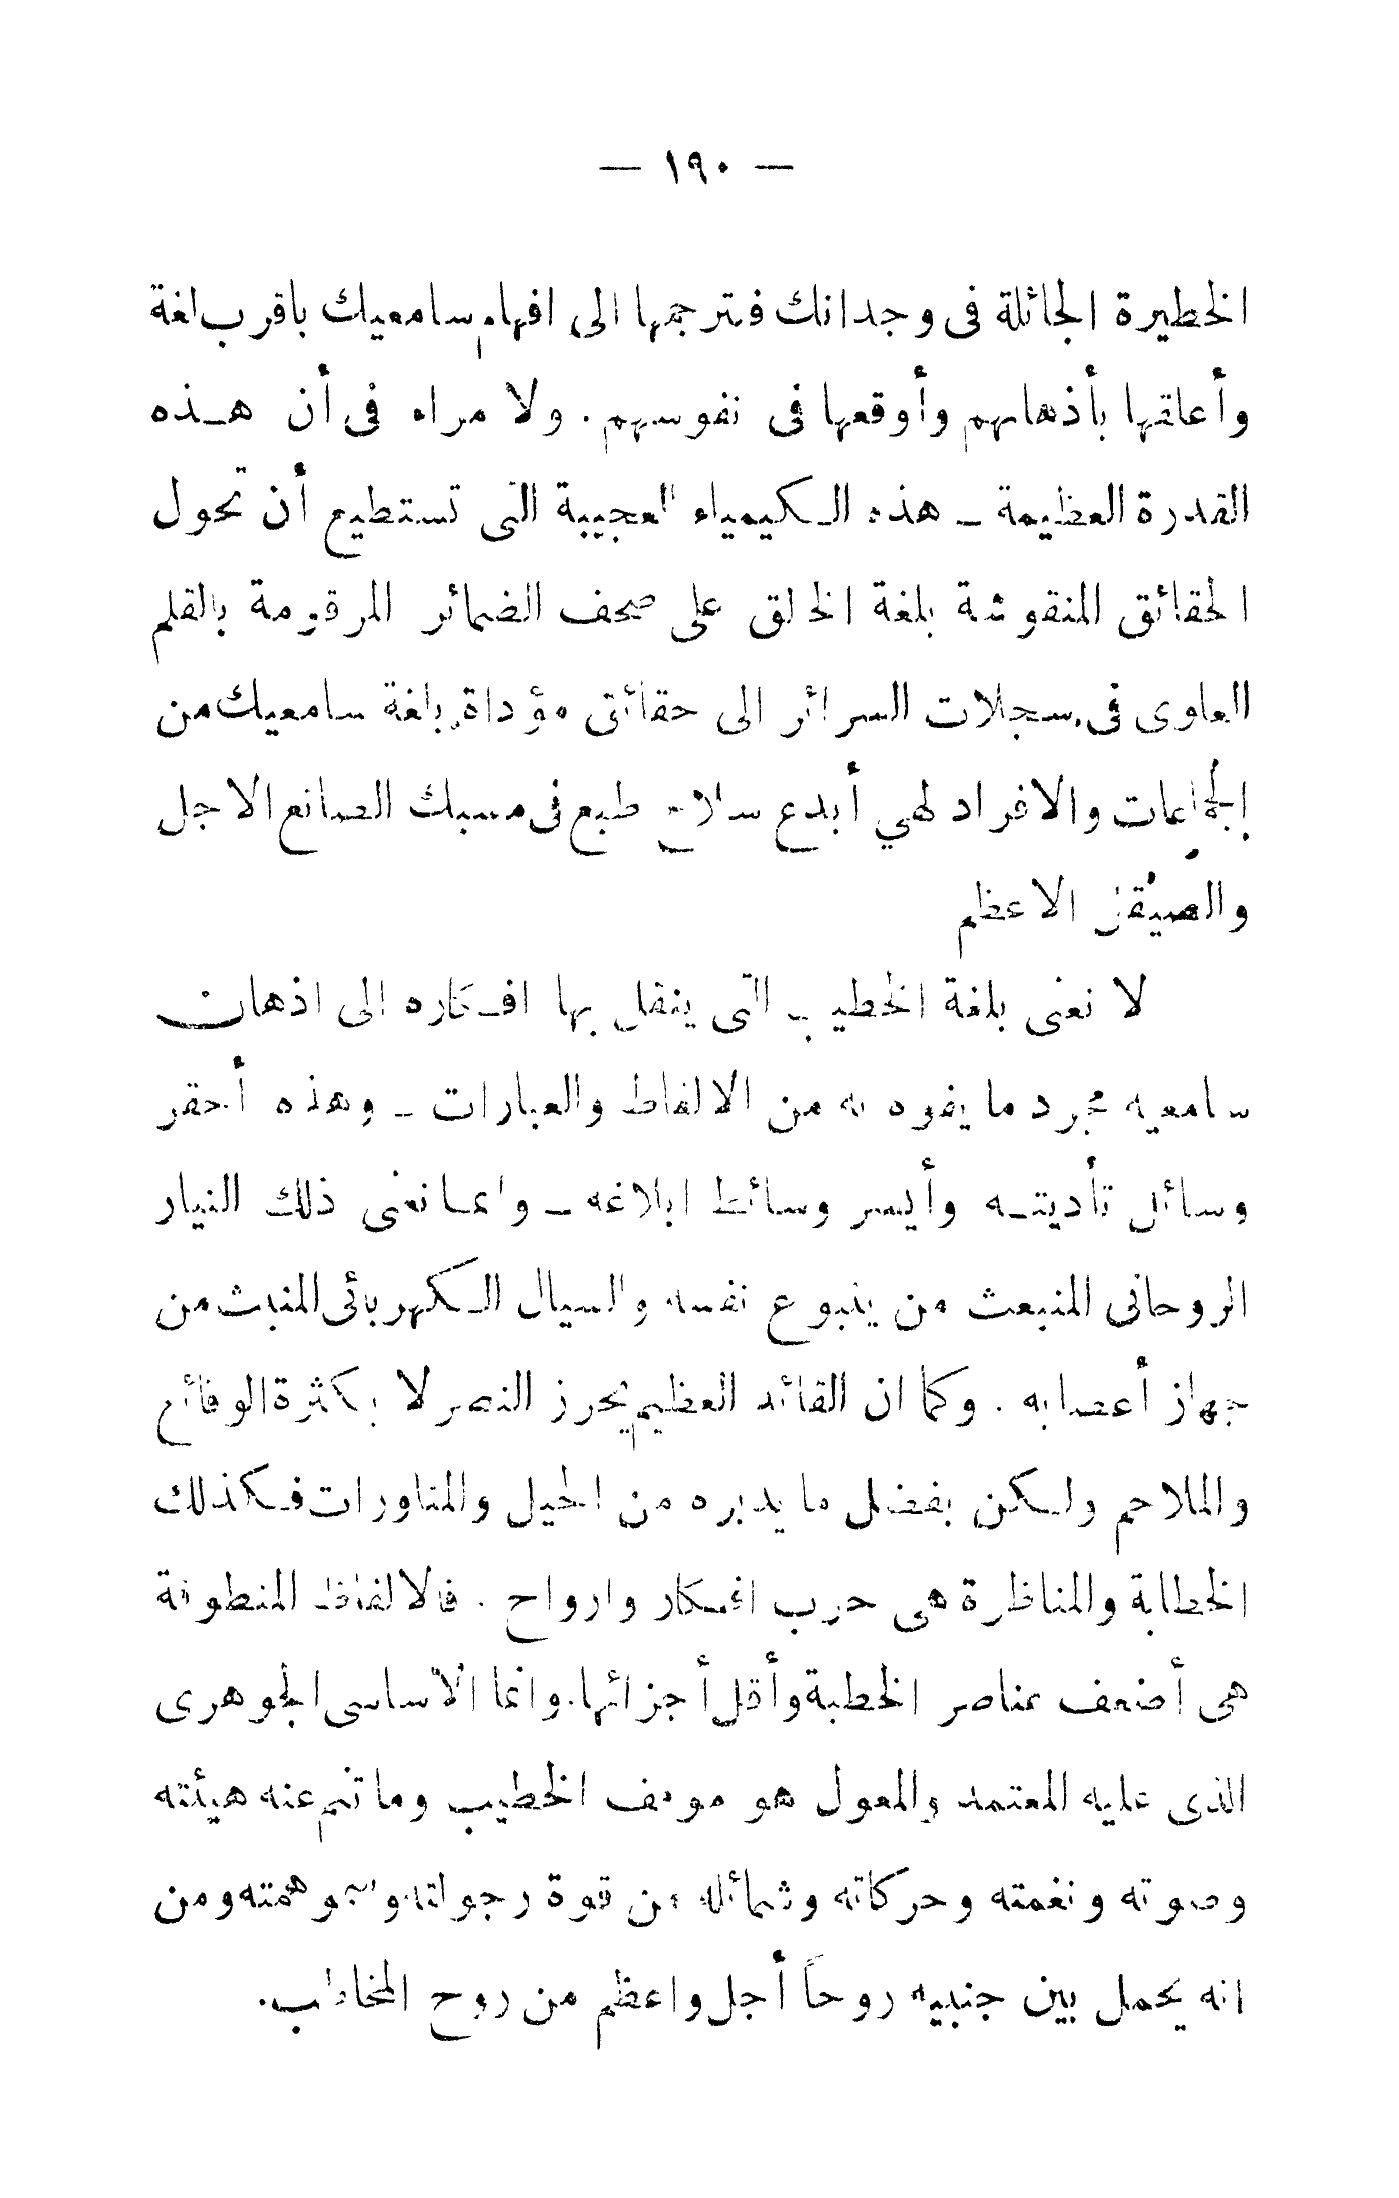 — ١٩٠ —
الخطيرة الجائلة فى وجدانك فتترجمها الى افهام سامعيك باقرب لغة
وأعلقها بأذهانهم وأوقعها فى نفوسهم . ولا مراء فى أن هـذه
القدرة العظيمة ـ هذه الـكيمياء العجيبة التى تستطيع أن تحول
الحقائق المنقوشة بلغة الخالق على صحف الضمائر المرقومة بالقلم
العلوى فى سجلات السرائر الى حقائق مؤداة بلغة سامعيك من
الجماعات والافراد لهي أبدع سلاح طبع فى مسبك الصانع الاجل
والصيقل الاعظم
لا نعنى بلغة الخطيب التى ينقل بها افـكاره الى اذهان
سامعيه مجرد ما يفوه به من الالفاظ والعبارات ـ وهذه أحقر
وسائل تأديتـه وأيسر وسائط ابلاغه ـ وانمـا نعنى ذلك التيار
الروحانى المنبعث من ينبوع نفسه والسيال الـكهربائى المنبث من
جهاز أعصابه . وكما ان القائد العظيم يحرز النصر لا بكثرة الوقائع
والملاحم ولـكن بفضل ما يدبره من الحيل والمناورات فـكذلك
الخطابة والمناظرة هى حرب افـكار وارواح . فالالفاظ المنطوقة
هى أضعف عناصر الخطبة وأقل أجزائها. وانما الأساسى الجوهرى
الذى عليه المعتمد والمعول هو موقف الخطيب وما تنم عنه هيئته
وصوته ونغمته وحركاته وشمائله من قوة رجولته وسمو همته ومن
انه يحمل بين جنبيه روحاً أجل واعظم من روح المخاطب.